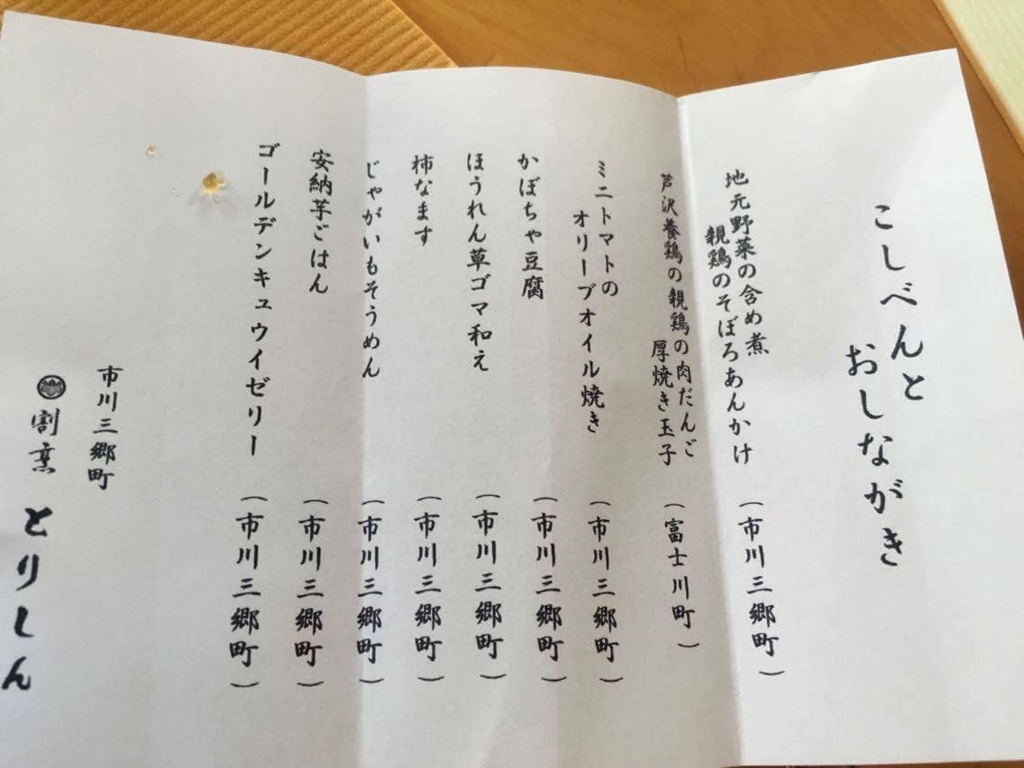 こしべんと
おしながき
地元野菜の含め煮
親鶏のそぼろあんかけ
(市川三郷町)
芦沢養鶏の親鶏の肉だんご
厚焼き玉子
(富士川町)
ミニトマトの
オリーブオイル焼き
(市川三郷町)
かぼちゃ豆腐
(市川三郷町)
ほうれん草ゴマ和え
(市川三郷町)
柿なます
(市川三郷町)
じゃがいもそうめん
(市川三郷町)
安納芋ごはん
(市川三郷町)
ゴールデンキュウイゼリー
(市川三郷町)
市川三郷町
割烹 とりしん